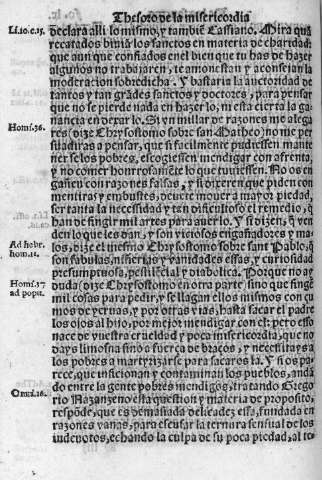 Thesoro de la misericordia
Li.10.c.15. declara alli lo mismo, y tambiē Cassiano. Mira quā
recatados biuiā los sanctos en materia de charidad:
que aun que confiados enel bien que tu has de hazer
algunos no trabajaren, te amonestan y aconsejan la
moderacion sobredicha. Y bastaria la auctoridad de
tantos y tan grādes sanctos y doctores, para pensar
que no se pierde nada en hazerlo, ni esta cierta la ga-
nancia en dexarlo. Si vn millar de razones me alega
Homi.36. res (dize Chrysostomo sobre san Matheo) no me per
suadiras a pensar, que si facilmente pudiessen mante
nerse los pobres, escogiessen mendigar con afrenta,
y no comer honrrosamēte lo que tuuiessen. No os en
gañen con razones falsas, y si dixeren que piden con
mentiras y embustes, deuete mouer a mayor piedad,
ser tanta la necessidad y tan dificultoso el remedio, q̄
han de fingir mil artes para auerlo. Y si dizē, q̄ ven
den lo que les dan, y son viciosos engañadores y ma
Ad hebr. los, dize el mesmo Chrysostomo sobre sant Pablo, q̄
hom.11. son fabulas, niñerias y vanidades essas, y curiosidad
presumptuosa, pestilēcial y diabolica. Porque no ay
Homi.37 duda (dize Chrysostomo en otra parte) sino que fingē
ad popu. mil cosas para pedir, y se llagan ellos mismos con çu
mos de yeruas, y por otras vias, hasta sacar el padre
los ojos al hijo, por mejor mendigar con el: pero esso
nace de vuestra crueldad y poca misericordia, que no
days limosna sino a fuerça de braços, y necessitays a
los pobres a martyrizarse para sacaros la. Y si os pa
rece, que inficionan y contaminan los pueblos, andā
do entre la gente pobres mendigos, tratando Grego
Omni.16. rio Nazanzeno esta question y materia de proposito,
respōde, que es demasiada delicadez essa, fundada en
razones vanas, para escusar la ternura sensual de los
iudeuotos, echando la culpa de su poca piedad, al te-